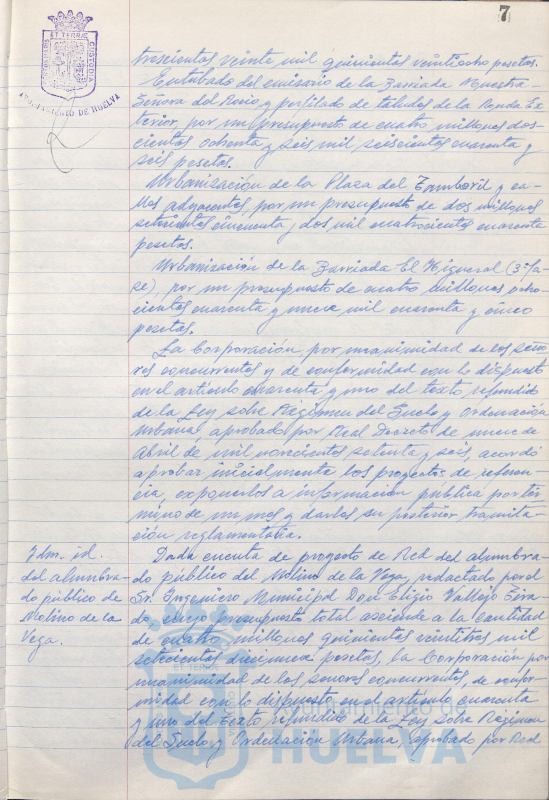 7
ET TERRÆ
CUSTODIA
AYUNTAMIENTO DE HUELVA
trescientas veinte mil quinientas veintiocho pesetas.
Entubado del emisario de la Barriada Nuestra
Señora del Rocio y perfilado de taludes de la Ronda Ex-
terior, por un presupuesto de cuatro millones dos-
cientas ochenta y seis mil seiscientas cuarenta y
seis pesetas.
Urbanización de la Plaza del Tamboril y ca-
lles adyacentes, por un presupuesto de dos millones
setecientas cincuenta y dos mil cuatrocientas cuarenta
pesetas.
Urbanización de la Barriada El Higueral (3ª fa-
se), por un presupuesto de cuatro millones ocho-
cientas cuarenta y nueve mil cuarenta y cinco
pesetas.
La Corporación, por unanimidad de los seño-
res concurrentes y de conformidad con lo dispuesto
en el artículo cuarenta y uno del texto refundido
de la Ley sobre Régimen del Suelo y Ordenación
Urbana, aprobado por Real Decreto de nueve de
Abril de mil novecientos setenta y seis, acordó
aprobar inicialmente los proyectos de referen-
cia, exponerlos a información pública por tér-
mino de un mes y darles su posterior tramita-
ción reglamentaria.
Idm. id.
del alumbra-
do público de
Molino de la
Vega.
Dada cuenta de proyecto de Red del alumbra-
do público del Molino de la Vega, redactado por el
Sr. Ingeniero Municipal Don Eligio Vallejo
do, cuyo presupuesto total asciende a la cantidad
de cuatro millones quinientas veintitres mil
setecientas diecinueve pesetas, la Corporación por
unanimidad de los señores concurrentes de confor-
midad con lo dispuesto en el artículo cuarenta
y uno del texto refundido de la Ley sobre Régimen
del Suelo y Ordenación Urbana, aprobado por Real
HUELVA